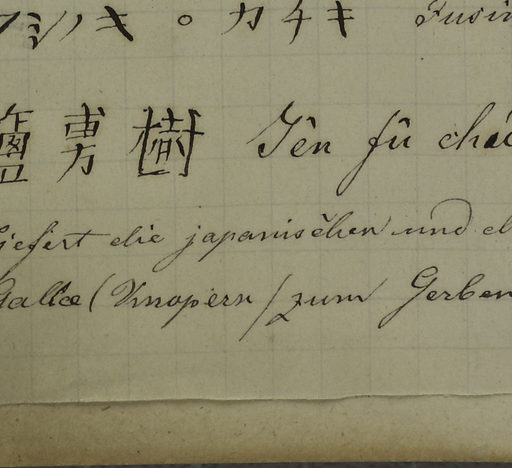 フシノキ 。 カチキ Fusin
鹽 樹 Yên fū chá
liefert die japanischen und
Galläe (Knopern / zum Gerben